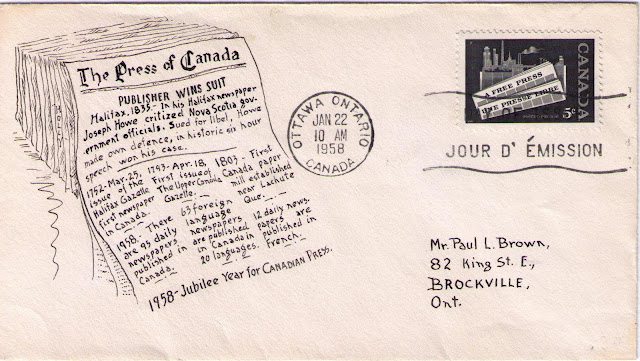 The Press of Canada
PUBLISHER WINS SUIT
Halifax, 1835- In his Halifax newspaper
Joseph Howe critized Nova Scotia gov-
ernment officials. Sued for libel, Howe
made own defence, in historic six hour
speech won his case.
1752-Mar.23,
issue of the
Halifax Gazette
first newspaper
in Canada.
1793-Apr.18,
First issue of
The Upper Canada
Gazette.
1803- First
Canada paper
mill established
near Lachute
Que.
1958. There
are 99 daily
newspapers
published in
Canada.
65 foreign
language
newspapers
are published
in Canada in
20 languages.
12 daily news.
papers are
published in
French.
1958-Jubilee Year for CANADIAN PRESS.
OTTAWA ONTARIO
JAN 22
10 AM
1958
CANADA
CANADA
A FREE PRESS
UNE PRESSE LIBRE
5¢
JOUR D' ÉMISSION
Mr. Paul L. Brown,
82 King St. E.,
BROCKVILLE,
Ont.